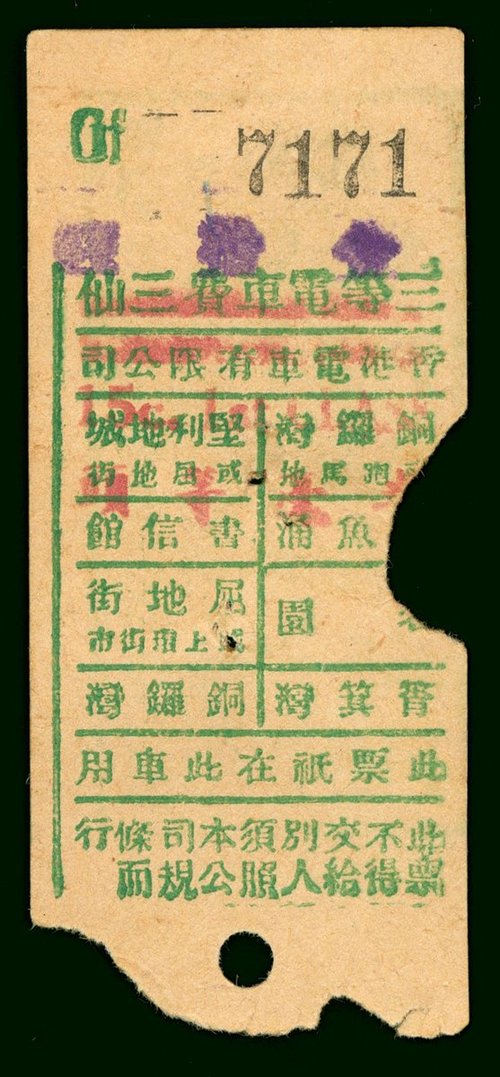 Gf 7171
三等電車費三仙
香港電車有限公司
銅鑼灣 堅利地城
跑馬地 或屈地街
魚涌 書信館
園 屈地街
或上環街市
筲箕灣 銅鑼灣
此票祇在此車用
此票不得交給別人須照本公司規條而行
15c.